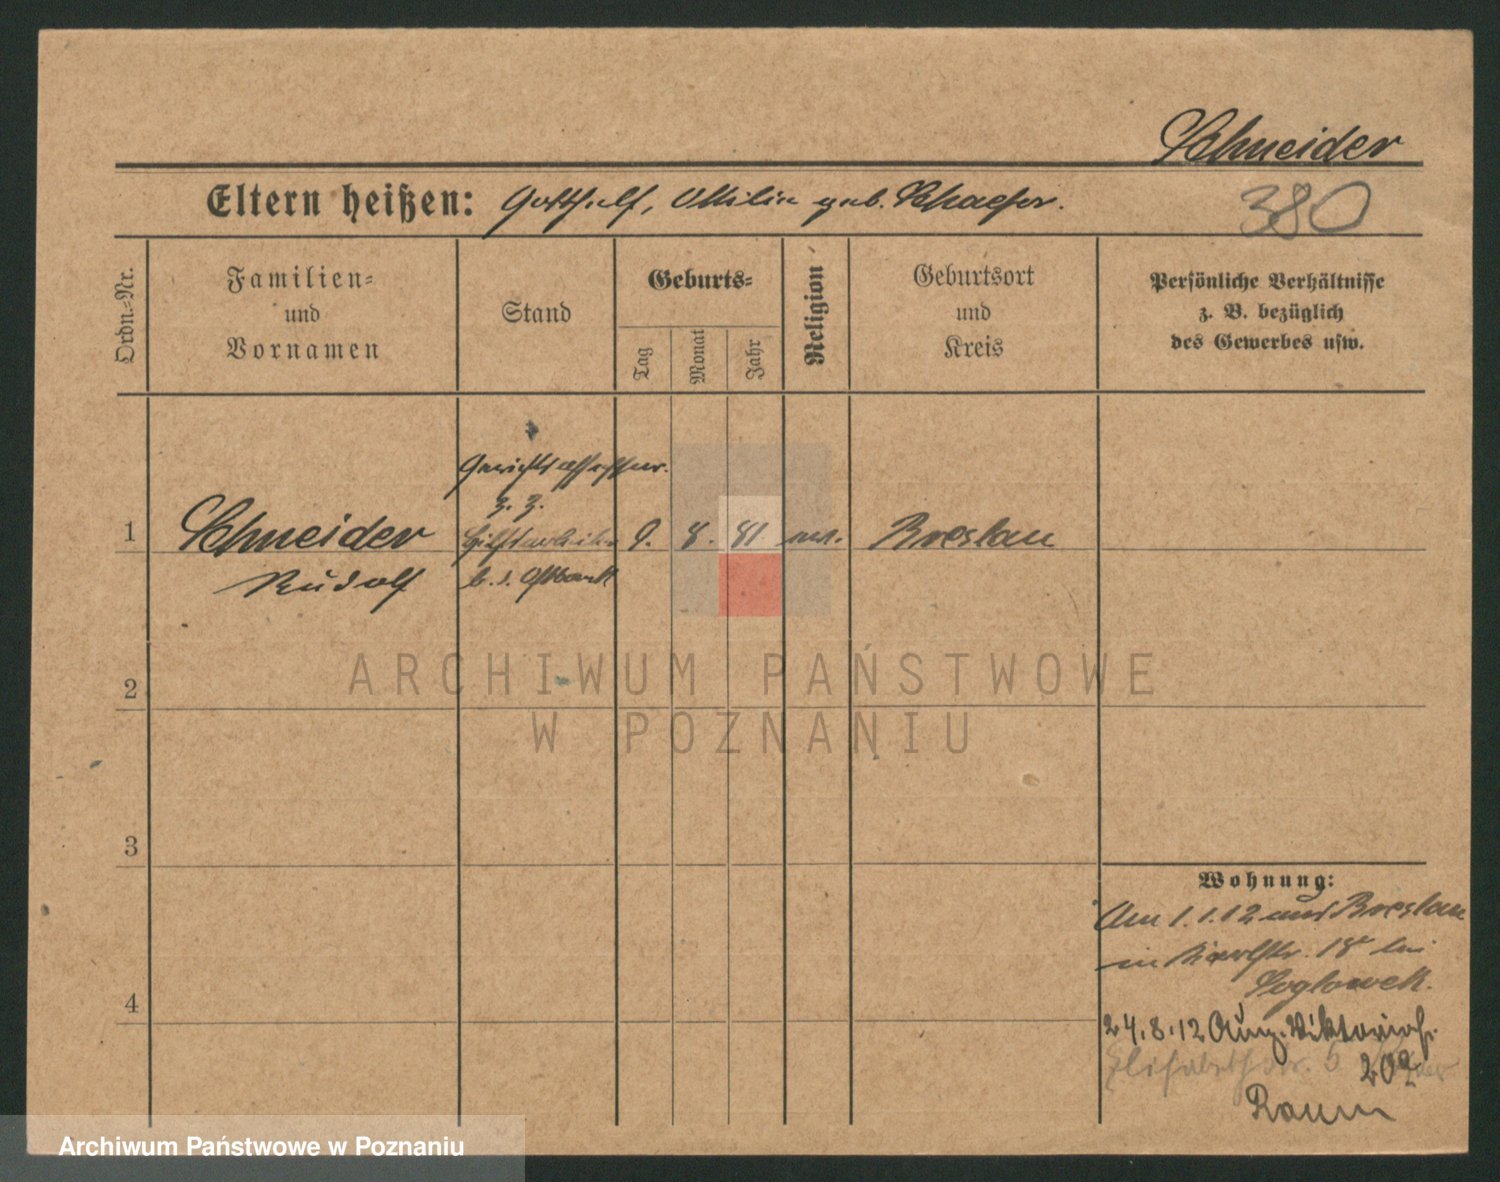 Schneider
Eltern heißen: Gotthilf, Ottilie geb. Schaefer.
380
Ordn.-Nr.
Familien-
und
Vornamen
Stand
Geburts-
Tag
Monat
Jahr
Religion
Geburtsort
und
Kreis
Persönliche Verhältnisse
z. B. bezüglich
des Gewerbes usw.
Gerichtsassessor.
z. Z.
1 Schneider Hilfsarbeiter 9. 8. 81 Breslau
Rudolf b. d. Ostbank
ARCHIWUM PAŃSTWOWE
W POZNANIU
2
3
4
Wohnung:
Am 1.1.12 aus Breslau
in 18 bei
24.8.12
Elisabethstr. 6
202
Archiwum Państwowe w Poznaniu